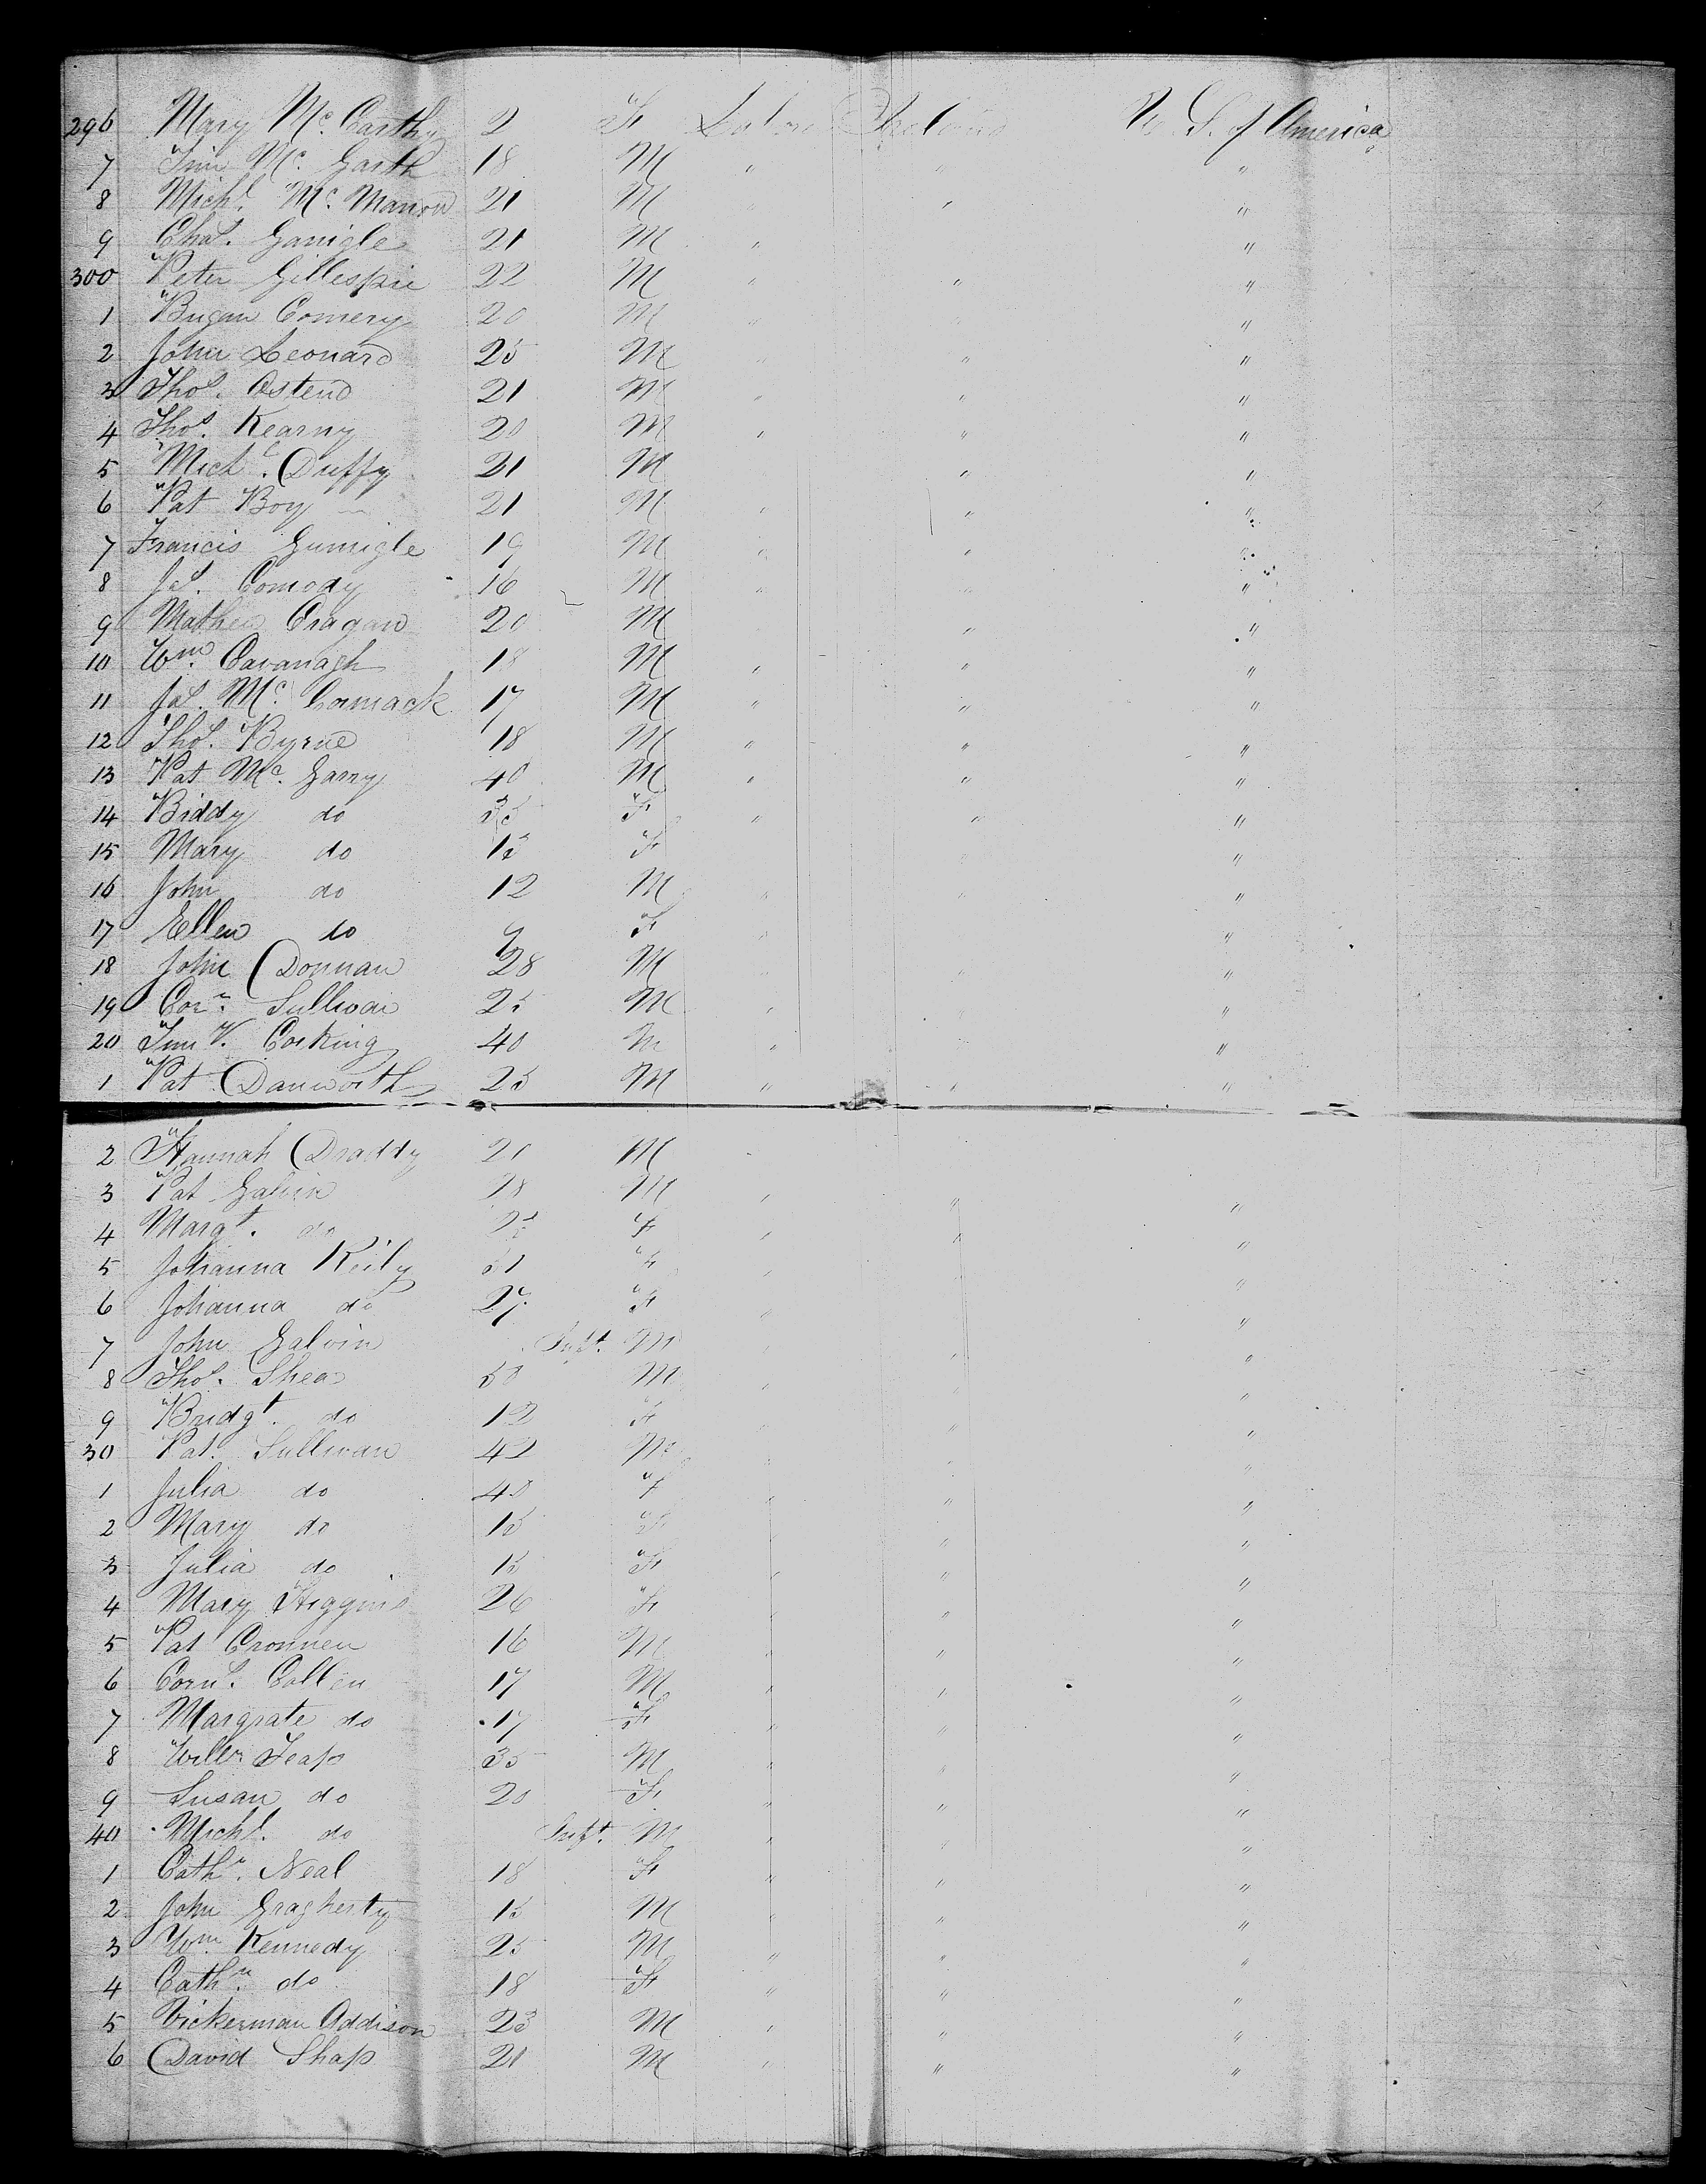 296 Mary Mc. Carthy 2 F Labore Ireland U. S. of America
7 Jim Mc. Garth 18 M " " "
8 Michl. Mc. Manon 21 M " " "
9 Chas. Ganigle 21 M " "
300 Peter Gillespie 22 M " " "
1 Bryan Comery 20 M " " "
2 John Leonard 25 M " " "
3 Thos. Ostend 21 M " " "
4 Thos. Kearny 20 M " " "
5 Michl. Duffy 21 M " "
6 Pat Boy 21 M " " "
7 Francis Gumigle 19 M " " "
8 Js. Comody 16 M " " "
9 Mathew Cragan 20 M " "
10 Wm. Cavanagh 18 M " " "
11 Jas. Mc. Cormack 17 M " " "
12 Thos. Byrne 18 M " " "
13 Pat Mc. Garry 40 M " " "
14 Biddy do F " " "
15 Mary do F " "
16 John do 12 M " " "
17 Ellen do 9 F " "
18 John Donnan 28 M " " "
19 Corn. Sullivan 25 M " " "
20 Jim V. Corking 40 M " " "
1 Pat Danworth 25 M " " "
2 Hannah Draddy 20 M
3 Pat Galvin 28 M " " "
4 Margt. do F " " "
5 Johanna Reily F " "
6 Johanna do 27 F " "
7 John Galvin Inft. M " " "
8 Thos. Shea 50 M " " "
9 Bridgt. do 12 F " "
30 Pat. Sullivan 42 M " " "
1 Julia do 40 F " " "
2 Mary do 15 F " " "
3 Julia do 15 F " " "
4 Mary Higgins 26 F " " "
5 Pat Cronnen 16 M " " "
6 Corns. Collen 17 M " " "
7 Margrate do 17 F " " "
8 Willm Leaps 35 M " " "
9 Susan do 20 F " " "
40 Michl. do Inft. M " " "
1 Cathn. Neal 18 F " " "
2 John Gragherty 15 M " " "
3 Wm. Kennedy 25 M " " "
4 Cathn. do 18 F " " "
5 Vickerman Addison 23 M " " "
6 David Shap 21 M " " "